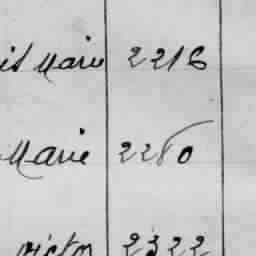 Marie 2216
Marie 2280
victor 2322